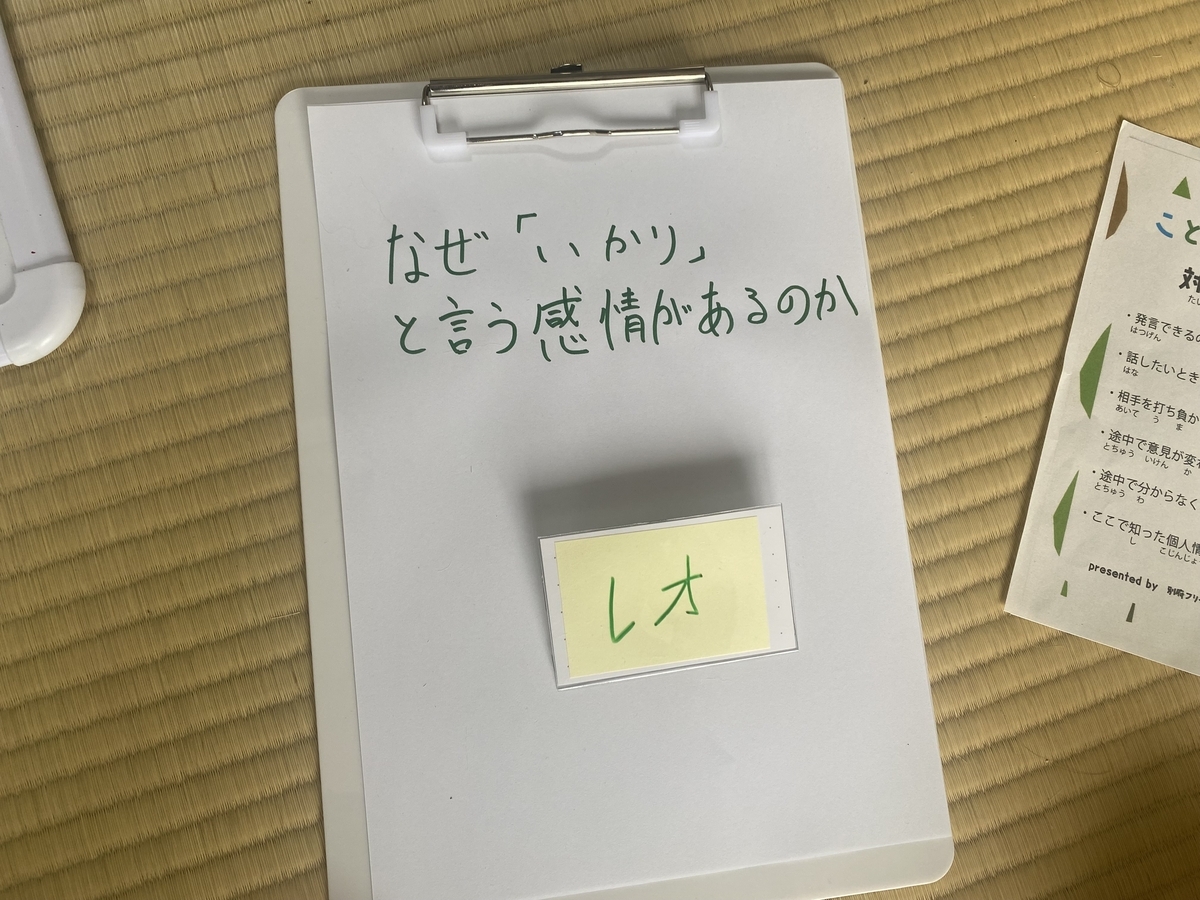 なぜ「いかり」
と言う感情があるのか
レオ
こと
・発言できるの
はつげん
・話したいとき
はな
・相手を打ち負か
あいて う ま
・途中で意見が変
とちゅう いけん か
・途中で分からなく
とちゅう わ
・ここで知った個人情
し こじんじょ
presented by 別府フリー